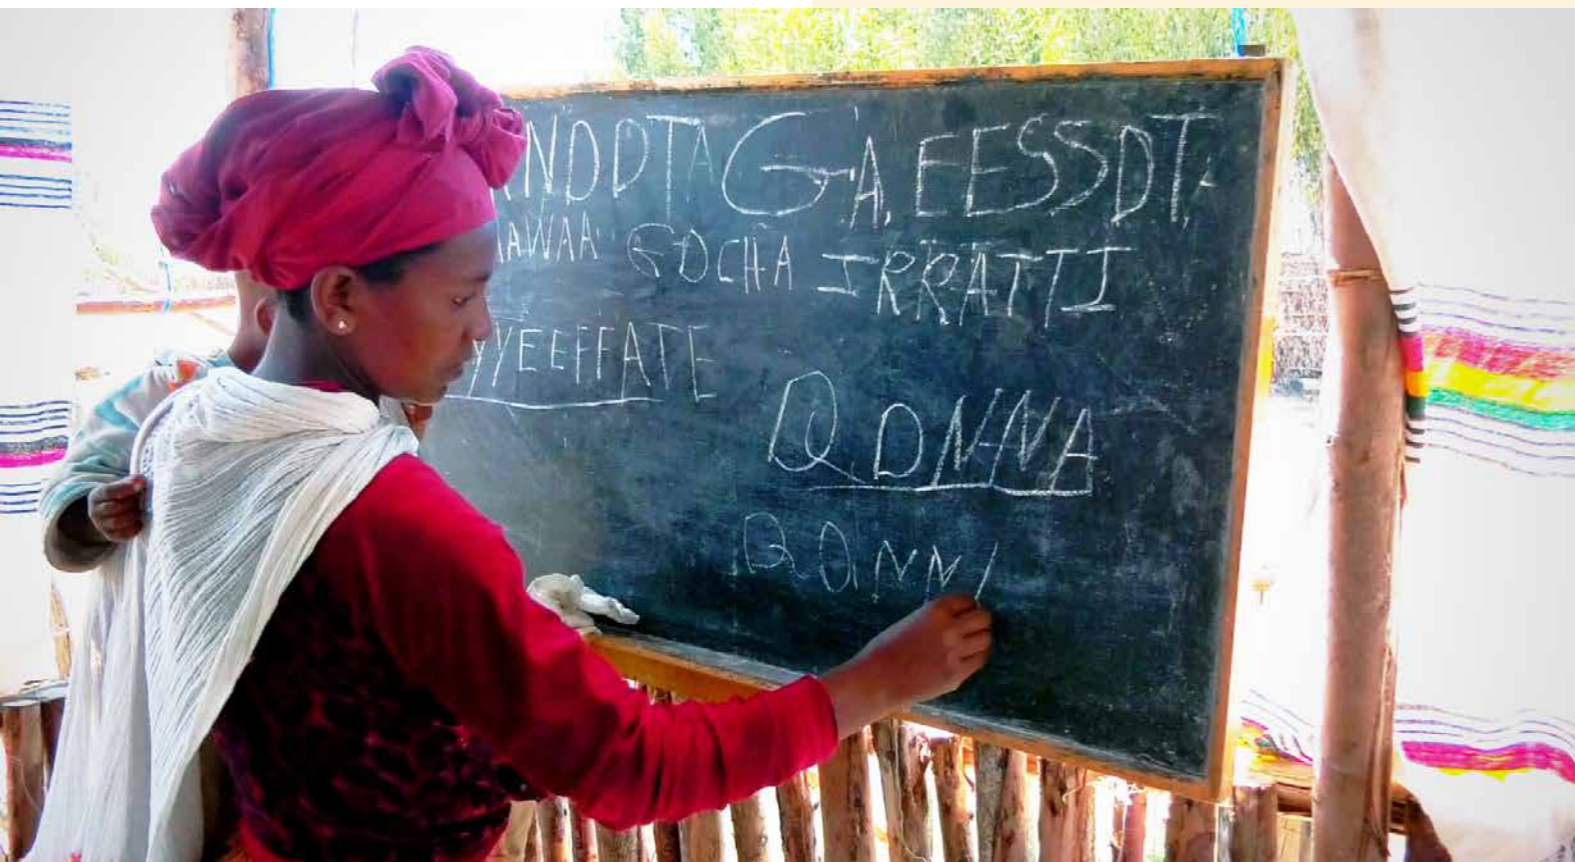 GA,EESSOT,
AWAA GOCHA IRRATTI
YYEEFFATE
QONNA
QONN